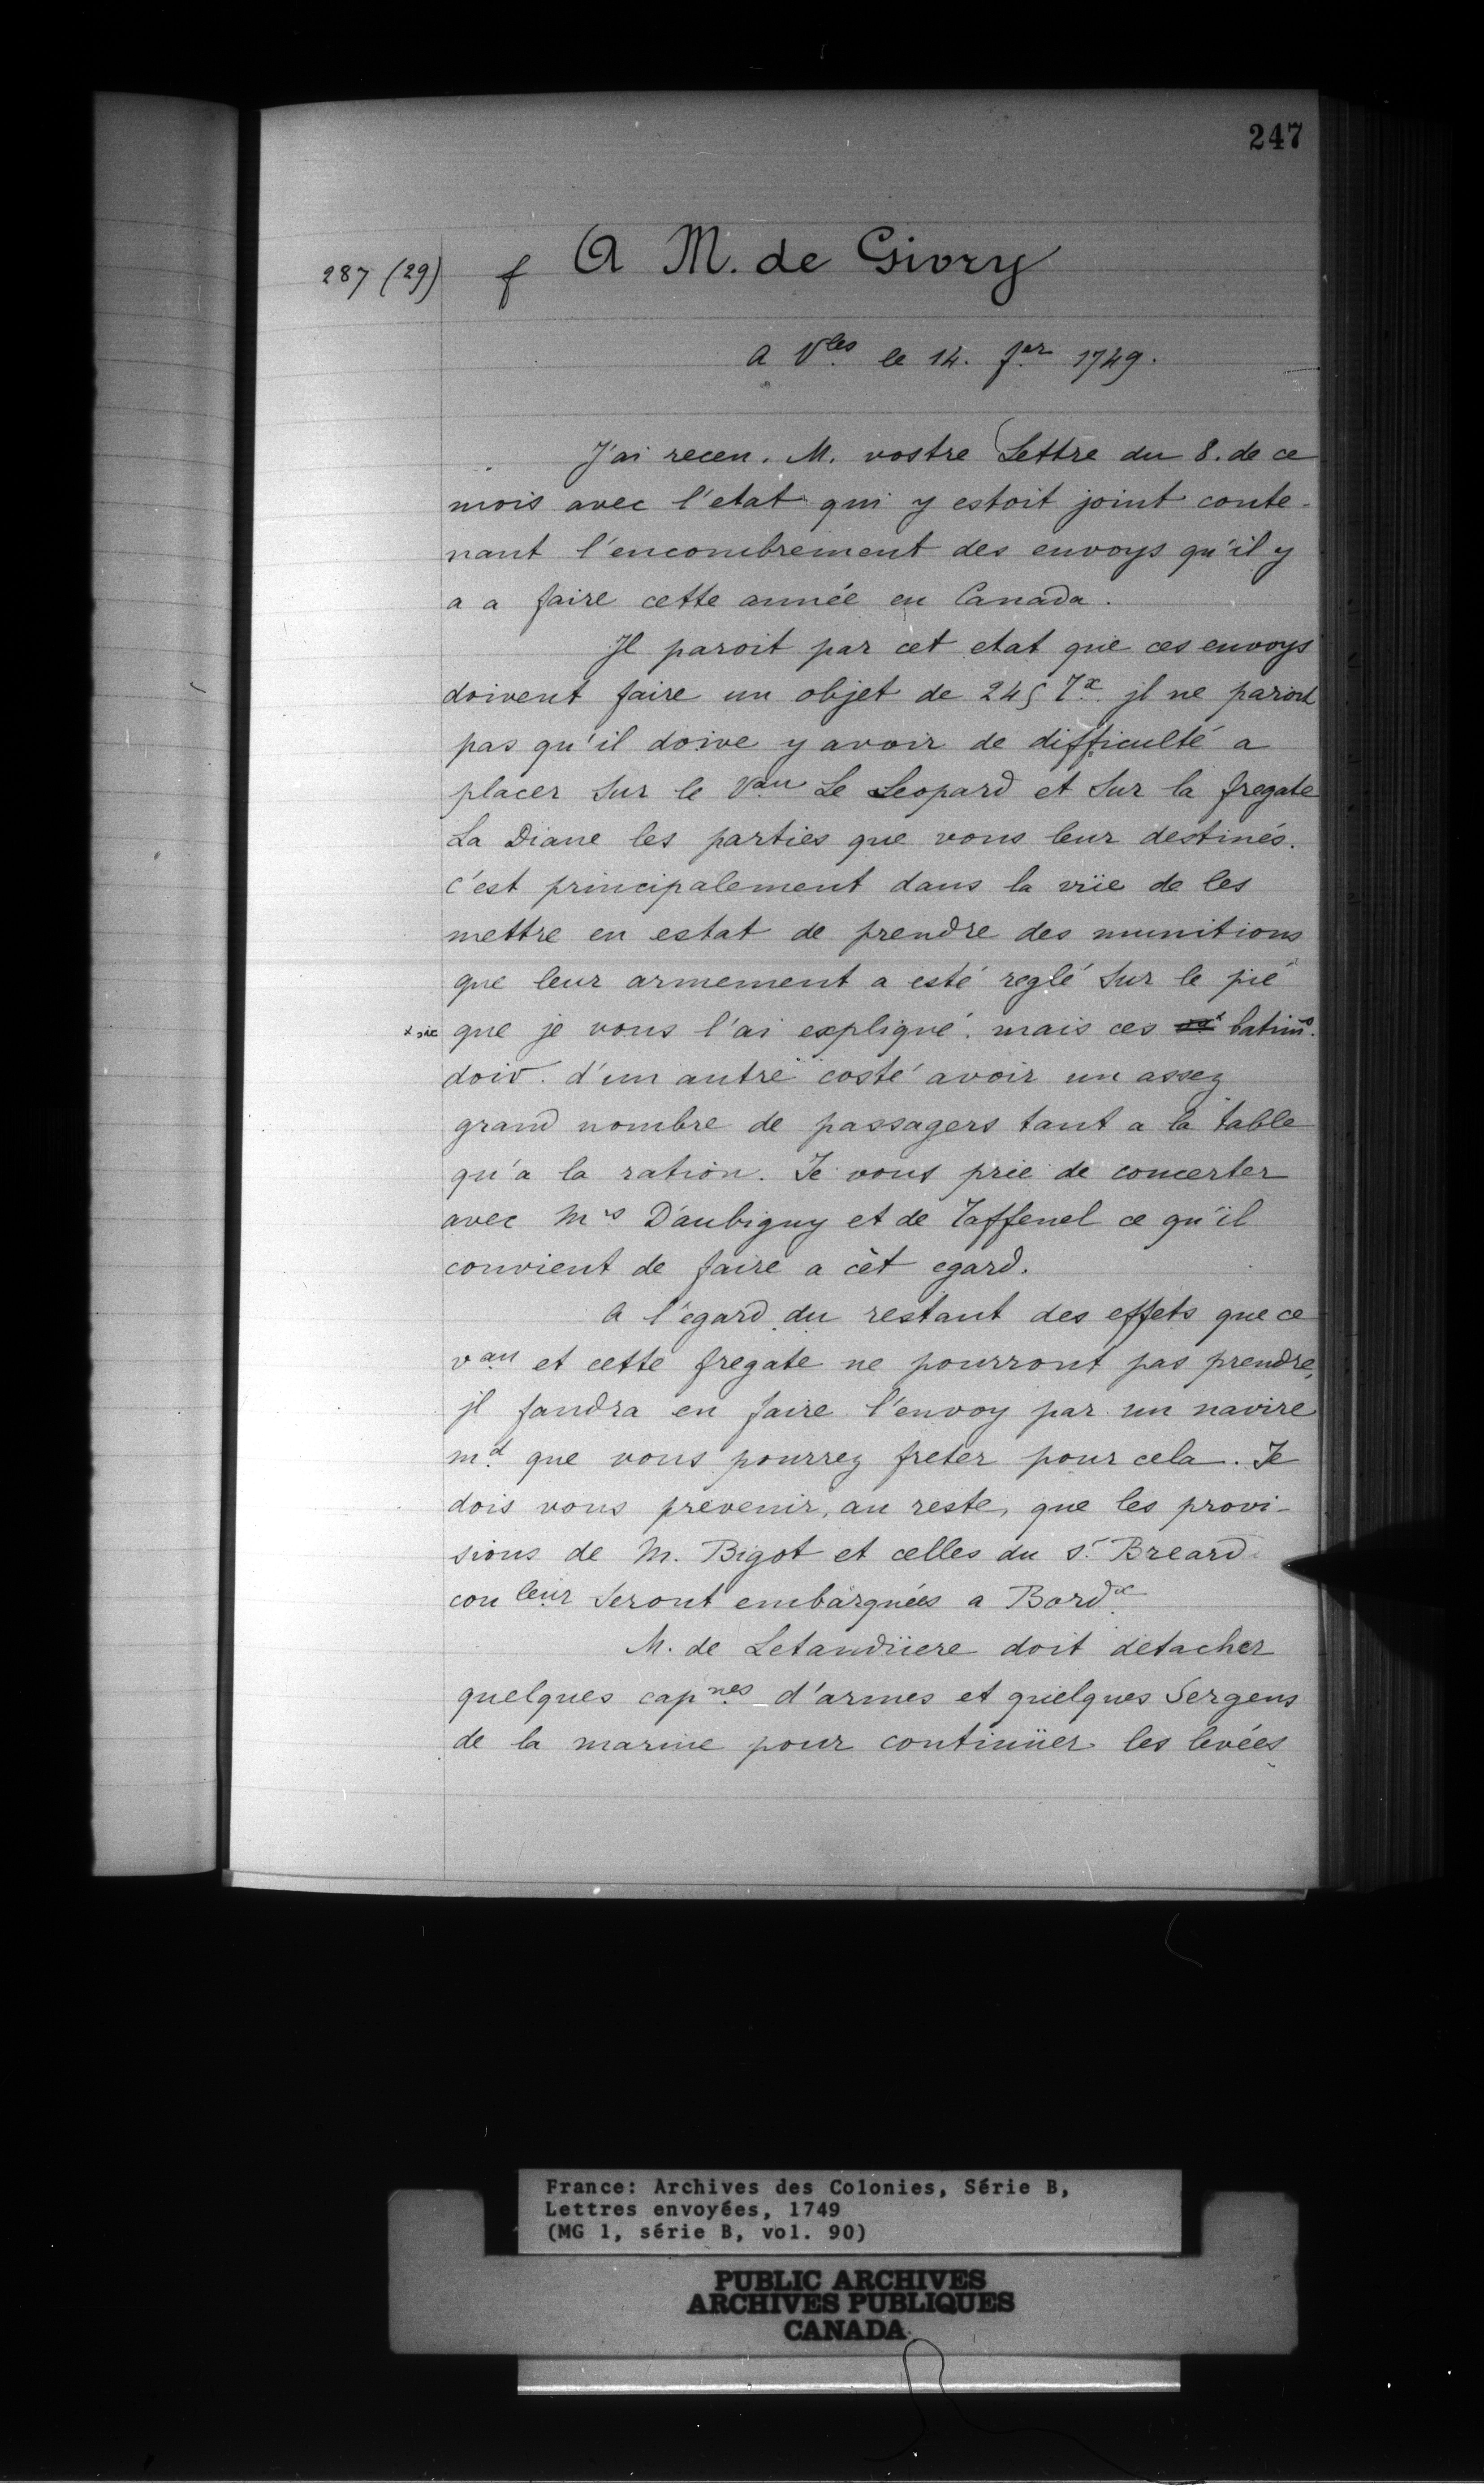 247
287 (29) f A M. de Givry
A Vles le 14. fer 1749.
J'ai receu. M. vostre Lettre du 8. de ce
mois avec l'etat qui y estoit joint conte-
nant l'encombrement des envoys qu'il y
a a faire cette année en Canada.
Jl paroit par cet etat que ces envoys
doivent faire un objet de 245 Tx. jl ne paroit
pas qu'il doive y avoir de difficulté a
placer sur le Vau Le Leopard et sur la fregate
La Diane les parties que vous leur destinés.
c'est principalement dans la vüe de les
mettre en estat de prendre des munitions
que leur armement a esté reglé sur le pié
x sic que je vous l'ai expliqué. mais ces batims.
doiv. d'un autre costé avoir un assez
grand nombre de passagers tant a la table
qu'a la ration. Je vous prie de concerter
avec Mrs D'aubigny et de Taffenel ce qu'il
convient de faire a cèt egard.
A l'égard du restant des effets que ce
vau et cette fregate ne pourront pas prendre,
jl faudra en faire l'envoy par un navire
md. que vous pourrez freter pour cela. Je
dois vous prevenir, au reste, que les provi-
sions de M. Bigot et celles du Sr. Breard
con leur seront embarquées a Bordx.
M. de Letandüere doit detacher
quelques capnes d'armes et quelques Sergens
de la marine pour continüer les levées
France: Archives des Colonies, Série B,
Lettres envoyées, 1749
(MG 1, série B, vol. 90)
PUBLIC ARCHIVES
ARCHIVES PUBLIQUES
CANADA